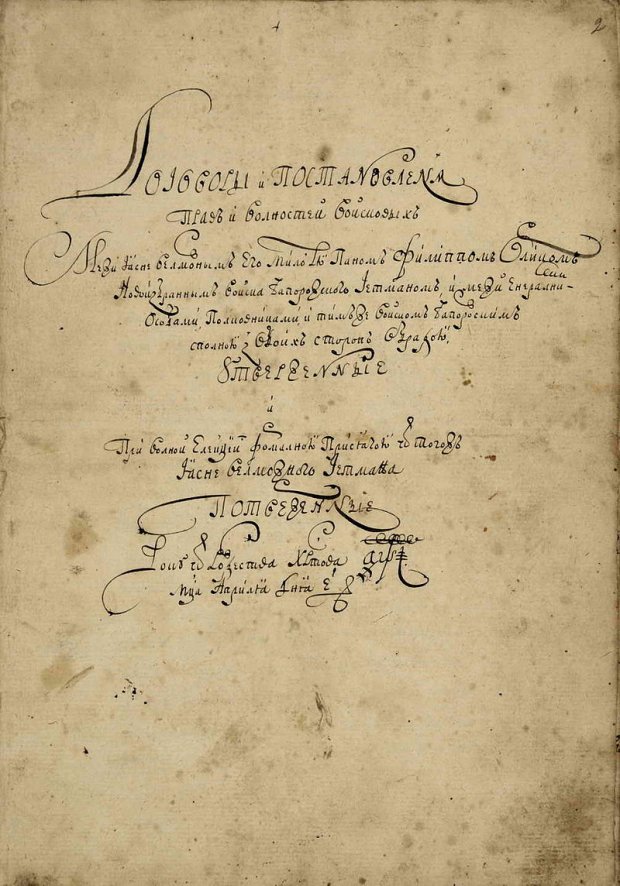 2
Договоры и Постановленя
Правъ и волностей войсковыхъ
Межи Ясне велможнымъ Его Милостю Паномъ Филиппомъ Орликомъ
Новоизбраннымъ войска Запорожского Гетманомъ, и межи Енералними
Особами Полковниками, и тимъже войскомъ Запорожскимъ
сполною з обоихъ сторонъ обрадою,
Утверженные
и
При волной Елекціи формалною Присягою ѿ тогожъ
Ясне велможного Гетмана
Потверженные
Року ѿ Рождества Христова ҂аѱі
Мця Априля дня е